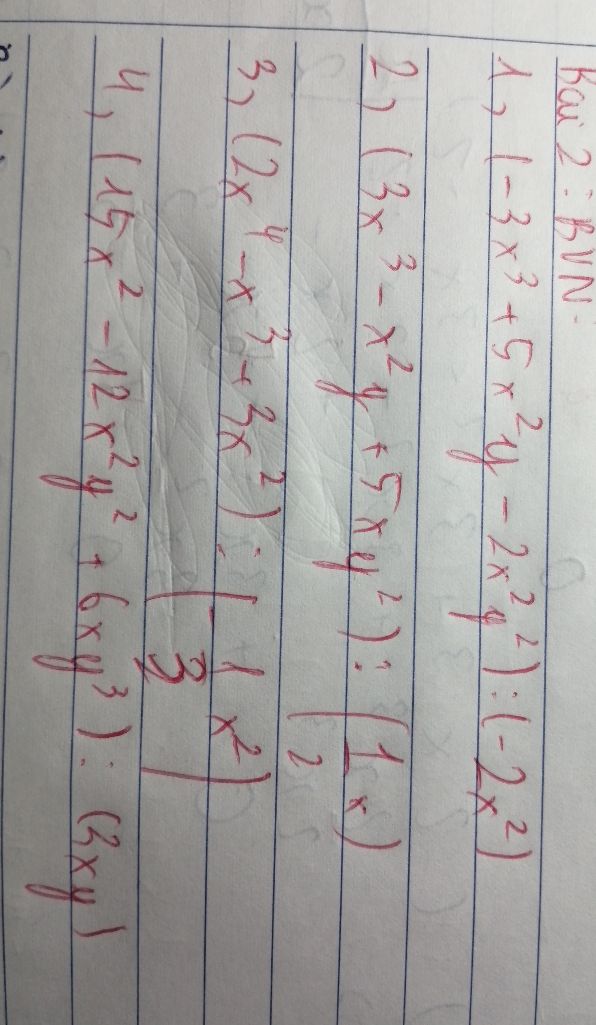 Bài 2: BVN:
1, (-3x³ + 5x²y - 2x²y²) : (-2x²)
2, (3x³ - x²y + 5xy²) : (1/2 x)
3, (2x⁴ - x³ + 3x²) : (-1/3 x²)
4, (15x² - 12x²y² + 6xy³) : (3xy)